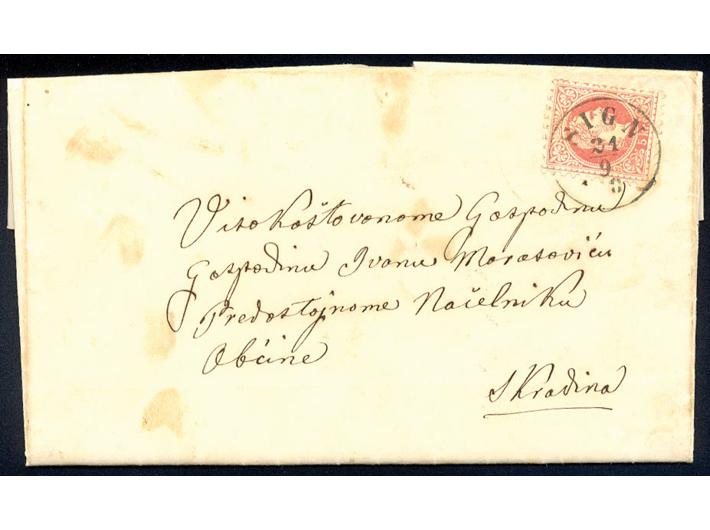 SIGN
21
9
Visokoštovanome Gospodinu
Gospodinu Ivanu Marasoviću
Predostojnome Načelniku
Obćine
Skradina